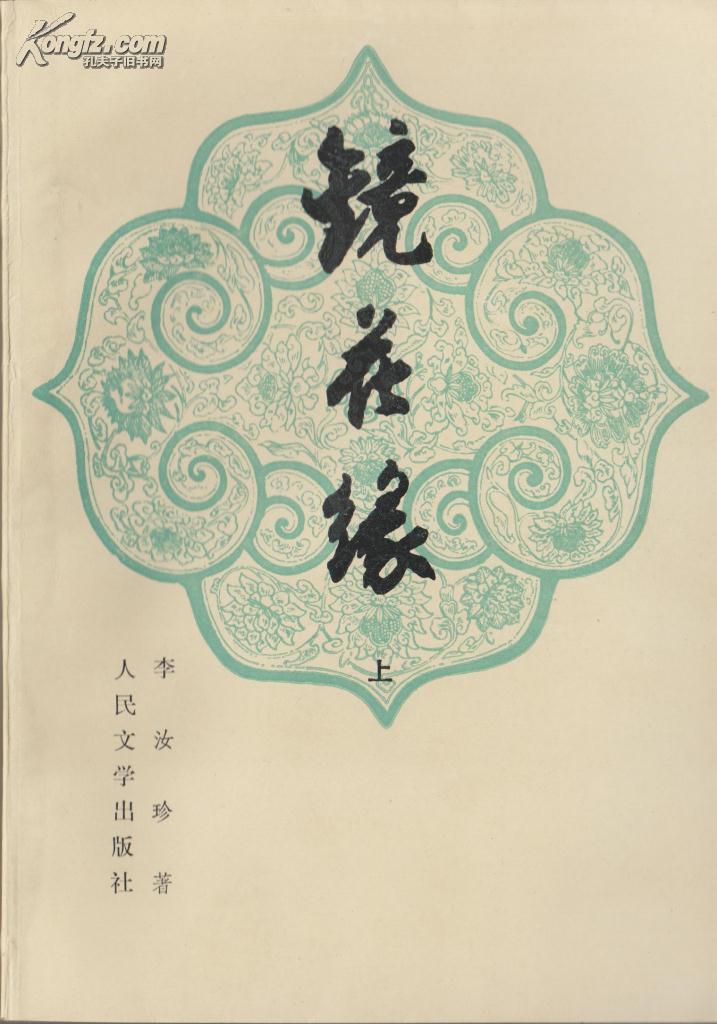 Kongfz.com
孔夫子旧书网
镜花缘
上
李汝珍著
人民文学出版社